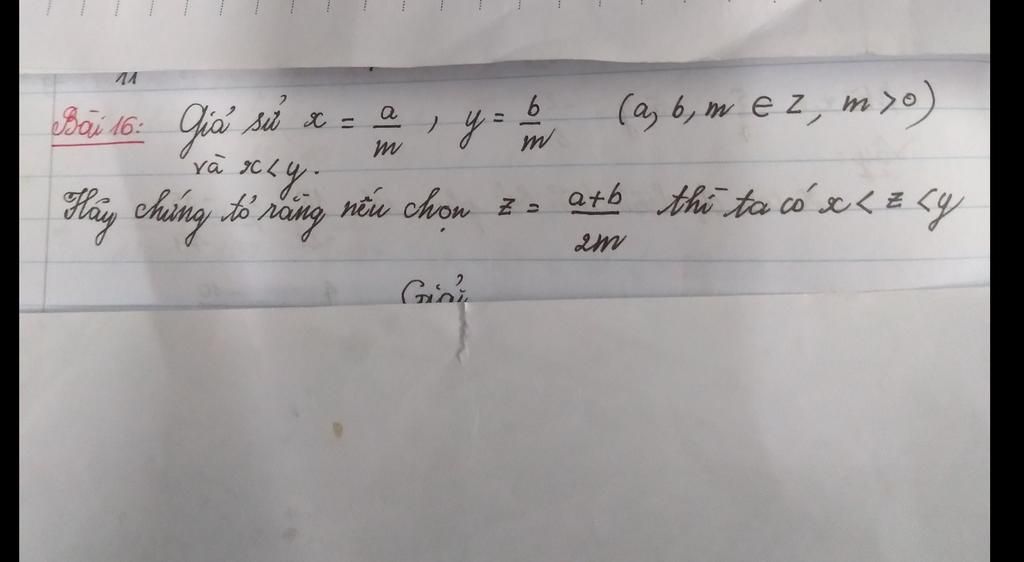 11
Bài 16: Giả sử x = a/m , y = b/m (a, b, m ∈ Z, m > 0)
và x < y.
Hãy chứng tỏ rằng nếu chọn z = a+b/2m thì ta có x < z < y
Giải